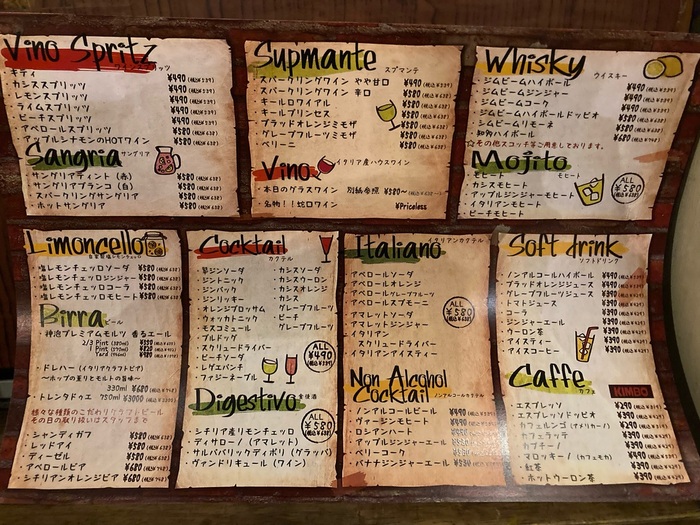 Vino Spritz
スプリッツ
・キティ ¥490 (税込539)
・カシススプリッツ ¥490 (税込539)
・レモンスプリッツ ¥490 (税込539)
・ライムスプリッツ ¥490 (税込539)
・ピーチスプリッツ ¥490 (税込539)
・アペロールスプリッツ ¥580 (税込638)
・アップルシナモンのHOTワイン ¥580 (税込638)
Sangria サングリア
・サングリアティント (赤) ¥580 (税込638)
・サングリアブランコ (白) ¥580 (税込638)
・スパークリングサングリア ¥580 (税込638)
・ホットサングリア ¥580 (税込638)
Supmante スプマンテ
・スパークリングワイン やや甘口 ¥490 (税込539)
・スパークリングワイン 辛口 ¥580
・キールロワイアル ¥580
・キールプリンセス ¥580
・ブラッドオレンジミモザ ¥580
・グレープフルーツミモザ ¥580
・ベリーニ ¥580
Vino イタリア産ハウスワイン
・本日のグラスワイン 別紙参照 ¥580~
・名物!!蛇口ワイン ¥Priceless
Whisky ウイスキー
・ジムビームハイボール ¥490
・ジムビームジンジャー ¥490
・ジムビームコーク ¥490
・ジムビームハイボールドッピオ ¥580
・ジムビームリモーネ ¥580
・知多ハイボール ¥680
☆その他スコッチ等ご用意しております。
Mojito モヒート
・モヒート
・カシスモヒート
・アップルジンジャーモヒート
・イタリアンモヒート
・ピーチモヒート
ALL ¥580
Limoncello
・塩レモンチェッロソーダ ¥580
・塩レモンチェッロジンジャー ¥580
・塩レモンチェッロコーラ ¥580
・塩レモンチェッロモヒート ¥580
Birra ビール
・神泡プレミアムモルツ 香るエール
2/3 Pint (370ml) ¥550
1 Pint ¥820
Yard ¥980
・ドレハー (イタリアクラフトビア)
~ホップの薫りとモルトの旨味~
330ml ¥680
・トレンタドゥエ 750ml ¥3000
様々な種類のこだわりクラフトビール
その日の取り扱いはスタッフまで
・シャンディガフ ¥580
・レッドアイ ¥580
・ディーゼル ¥580
・アペロールビア ¥680
・シチリアンオレンジビア ¥680
Cocktail カクテル
・翠ジンソーダ ・カシスソーダ
・ジントニック ・カシスウーロン
・ジンバック ・カシスオレンジ
・ジンリッキー ・カシス
・オレンジブロッサム グレープフルーツ
・ウォッカトニック ・ピーチ
・モスコミュール グレープフルーツ
・ブルドッグ
・スクリュードライバー
・ピーチソーダ
・レゲエパンチ
・ファジーネーブル
ALL ¥490
Digestivo 食後酒
・シチリア産リモンチェッロ
・ディサローノ (アマレット)
・サルバパリックディポリ (グラッパ)
・ヴァンドリキュール (ワイン)
ALL ¥580
Italiano イタリアンカクテル
・アペロールソーダ
・アペロールオレンジ
・アペロールグレープフルーツ
・アペロールスプモーニ
・アマレットソーダ
・アマレットジンジャー
・イタリアン
スクリュードライバー
・イタリアンアイスティー
ALL ¥580
Non Alcohol
Cocktail ノンアルコールカクテル
・ノンアルコールビール ¥490
・ヴァージンモヒート ¥490
・ロシアンハート ¥490
・アップルジンジャーエール
・ベリーコーク
・バナナジンジャーエール
Soft drink ソフトドリンク
・ノンアルコールハイボール ¥490
・ブラッドオレンジジュース ¥490
・グレープフルーツジュース ¥390
・トマトジュース ¥390
・コーラ ¥390
・ジンジャーエール ¥390
・ウーロン茶 ¥390
・アイスティー ¥390
・アイスコーヒー ¥390
Caffe カフェ
KIMBO
・エスプレッソ ¥290
・エスプレッソドッピオ ¥390
・カフェルンゴ (アメリカーノ) ¥290
・カフェラッテ ¥390
・カプチーノ ¥390
・マロッキーノ (カフェモカ) ¥490
・紅茶 ¥390
・ホットウーロン茶 ¥390